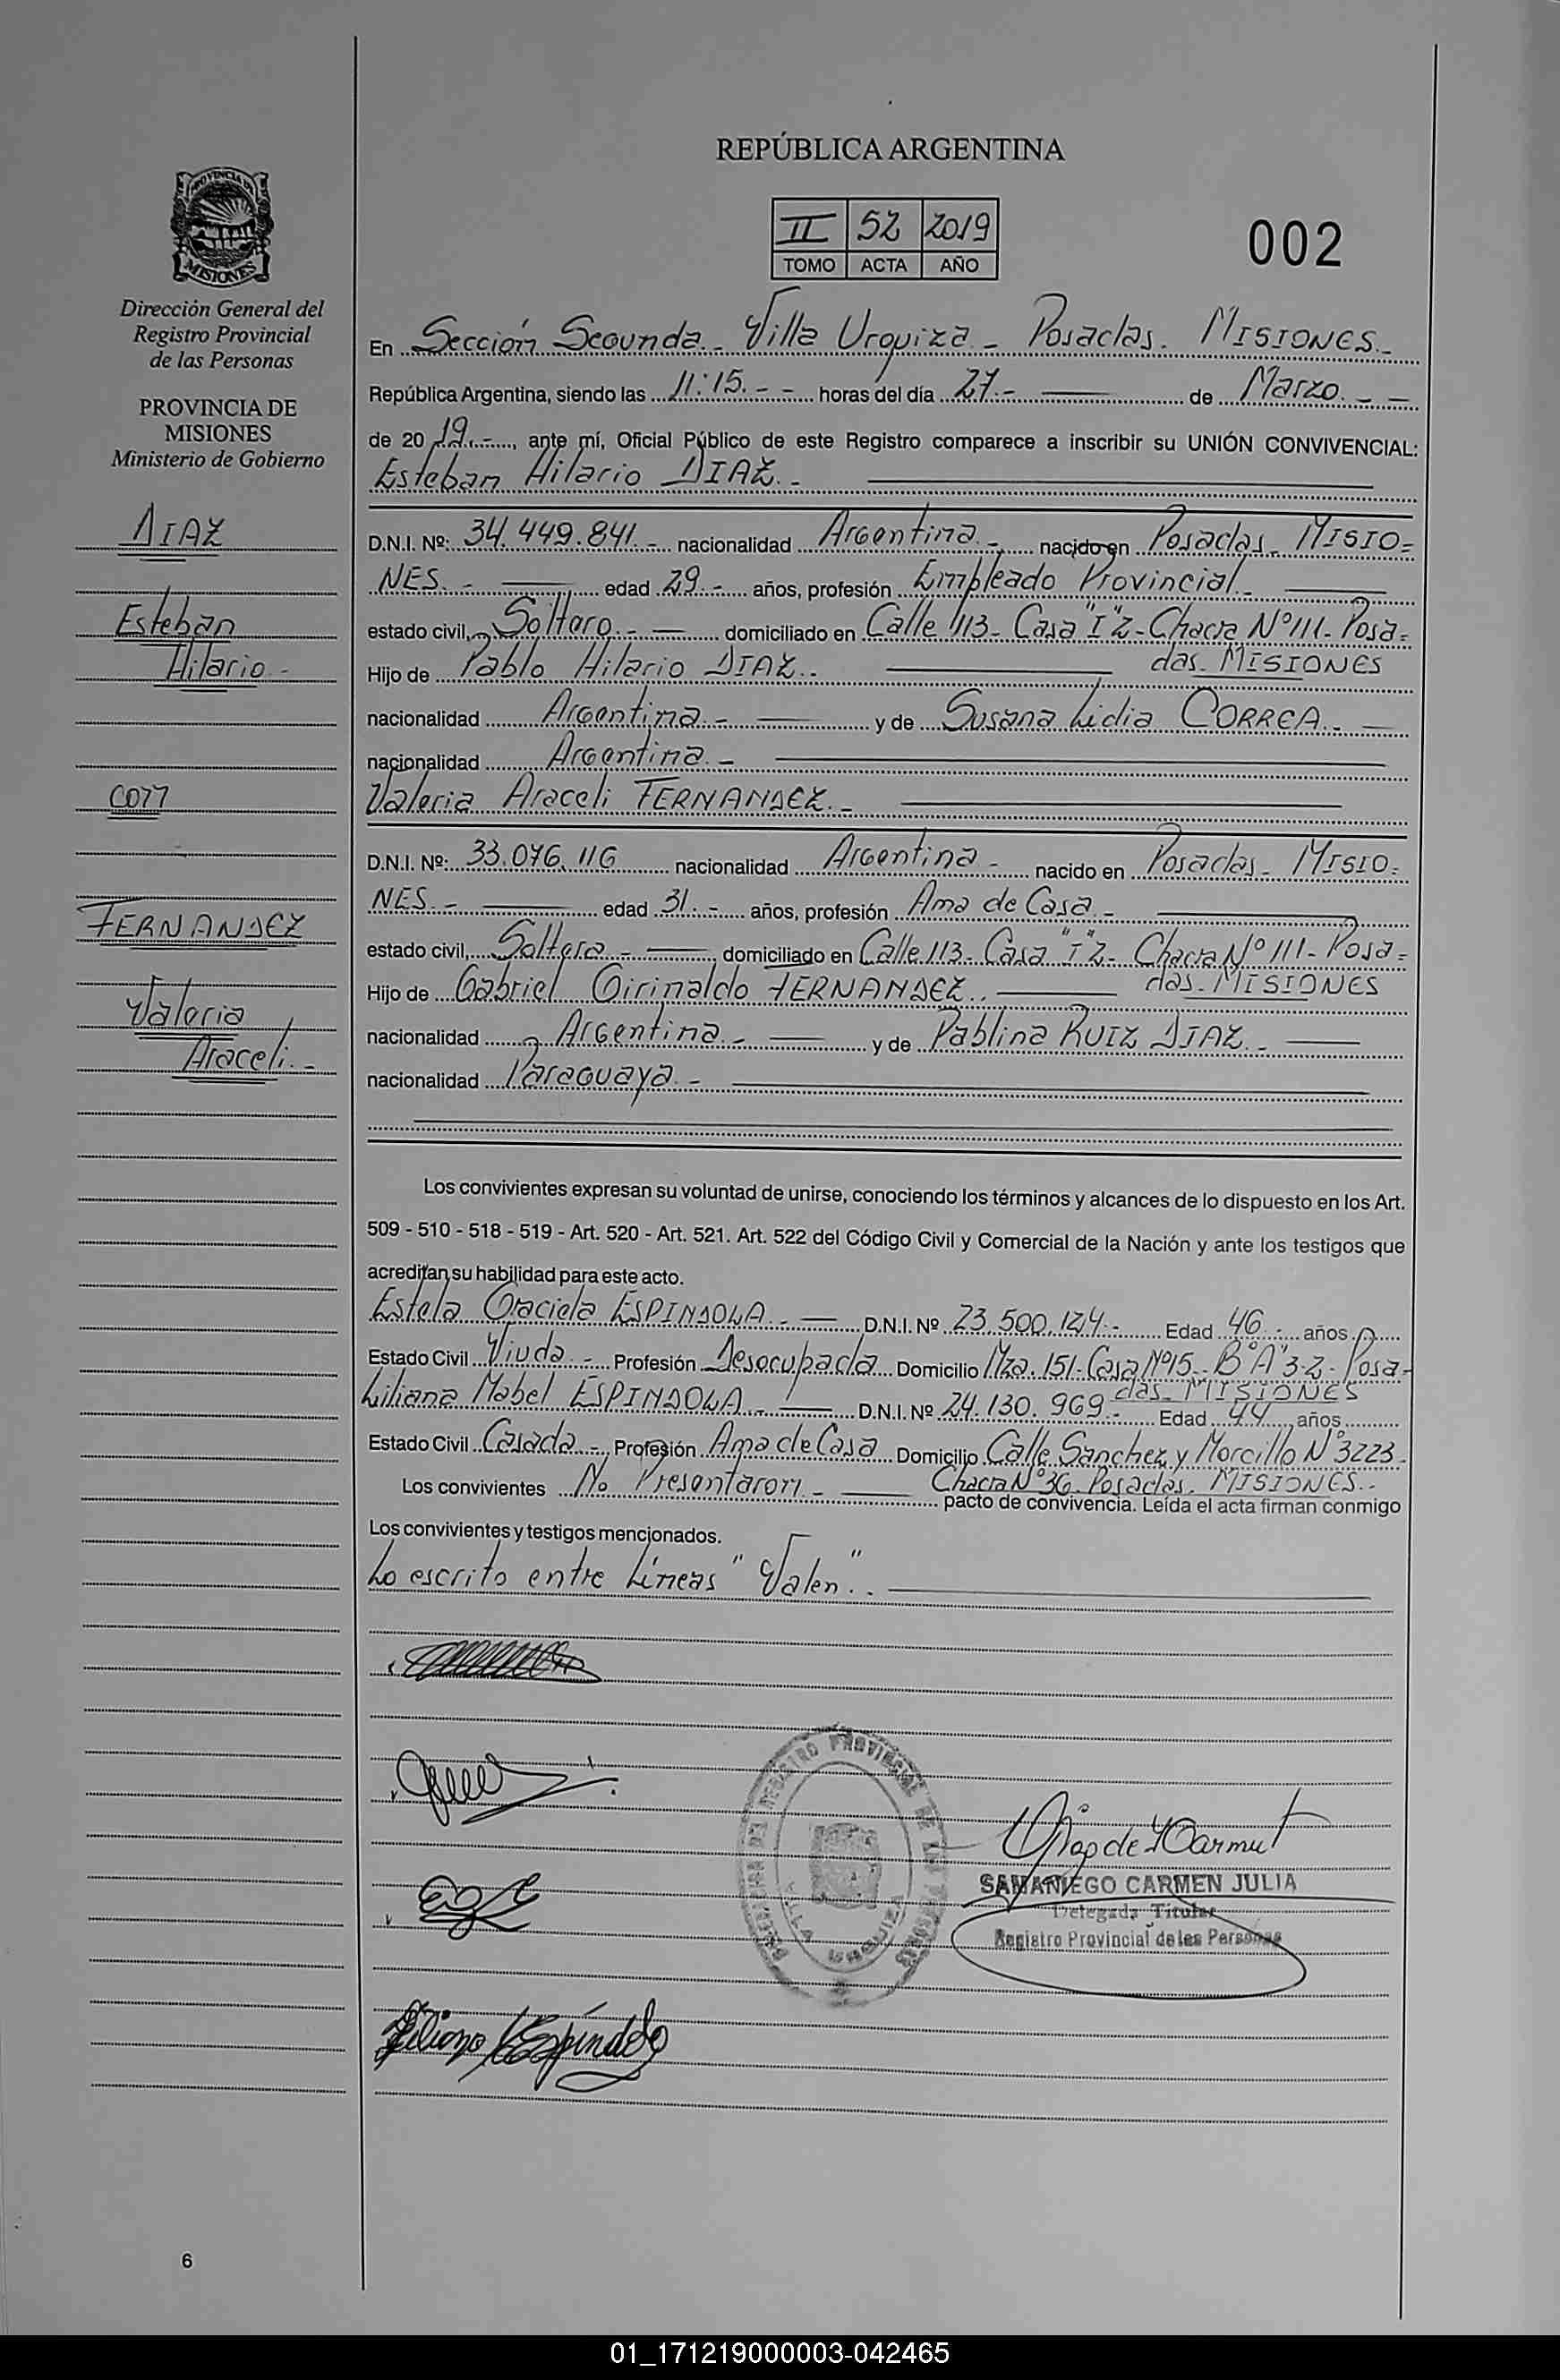 REPÚBLICA ARGENTINA
II 52 2019
TOMO ACTA AÑO
002
PROVINCIA DE
MISIONES
Dirección General del
Registro Provincial
de las Personas
PROVINCIA DE
MISIONES
Ministerio de Gobierno
DIAZ
Esteban
Hilario -
con
FERNANDEZ
Valeria
Araceli. -
En Sección Segunda - Villa Urquiza - Posadas. MISIONES. -
República Argentina, siendo las 11:15. - - horas del día 27. - de Marzo. - -
de 20 19. -, ante mí, Oficial Público de este Registro comparece a inscribir su UNIÓN CONVIVENCIAL:
Esteban Hilario DIAZ. -
D.N.I. Nº: 34.449.841. - nacionalidad Argentina. - nacido en Posadas - MISIO=
NES. - edad 29. - años, profesión Empleado Provincial. -
estado civil, Soltero. - domiciliado en Calle 113 - Casa "I" 2 - Chacra Nº 111 - Posa=
das - MISIONES
Hijo de Pablo Hilario DIAZ. -
nacionalidad Argentina. - y de Susana Lidia CORREA. -
nacionalidad Argentina. -
Valeria Araceli FERNANDEZ. -
D.N.I. Nº: 33.076.116 nacionalidad Argentina - nacido en Posadas - MISIO=
NES. - edad 31. - años, profesión Ama de Casa. -
estado civil, Soltera. - domiciliado en Calle 113 - Casa "I" 2 - Chacra Nº 111 - Posa=
das - MISIONES
Hijo de Gabriel Girinaldo FERNANDEZ. -
nacionalidad Argentina. - y de Pablina RUIZ DIAZ. -
nacionalidad Paraguaya. -
Los convivientes expresan su voluntad de unirse, conociendo los términos y alcances de lo dispuesto en los Art.
509 - 510 - 518 - 519 - Art. 520 - Art. 521. Art. 522 del Código Civil y Comercial de la Nación y ante los testigos que
acreditan su habilidad para este acto.
Estela Graciela ESPINDOLA. - D.N.I. Nº 23.500.124. - Edad 46. - años
Estado Civil Viuda. - Profesión Desocupada Domicilio Mza. 151 - Casa Nº15 - Bº "A" 3-2 - Posa-
das - MISIONES
Liliana Mabel ESPINDOLA. - D.N.I. Nº 24.130.969 - Edad 44 años
Estado Civil Casada - Profesión Ama de Casa Domicilio Calle Sanchez y Morcillo Nº 3223 -
Chacra Nº 36. Posadas. MISIONES. -
Los convivientes No Presentaron. - pacto de convivencia. Leída el acta firman conmigo
Los convivientes y testigos mencionados.
Lo escrito entre Líneas "Valen". -
Liliana Espíndola
SAMANIEGO CARMEN JULIA
Delegada Titular
Registro Provincial de las Personas
6
01_171219000003-042465